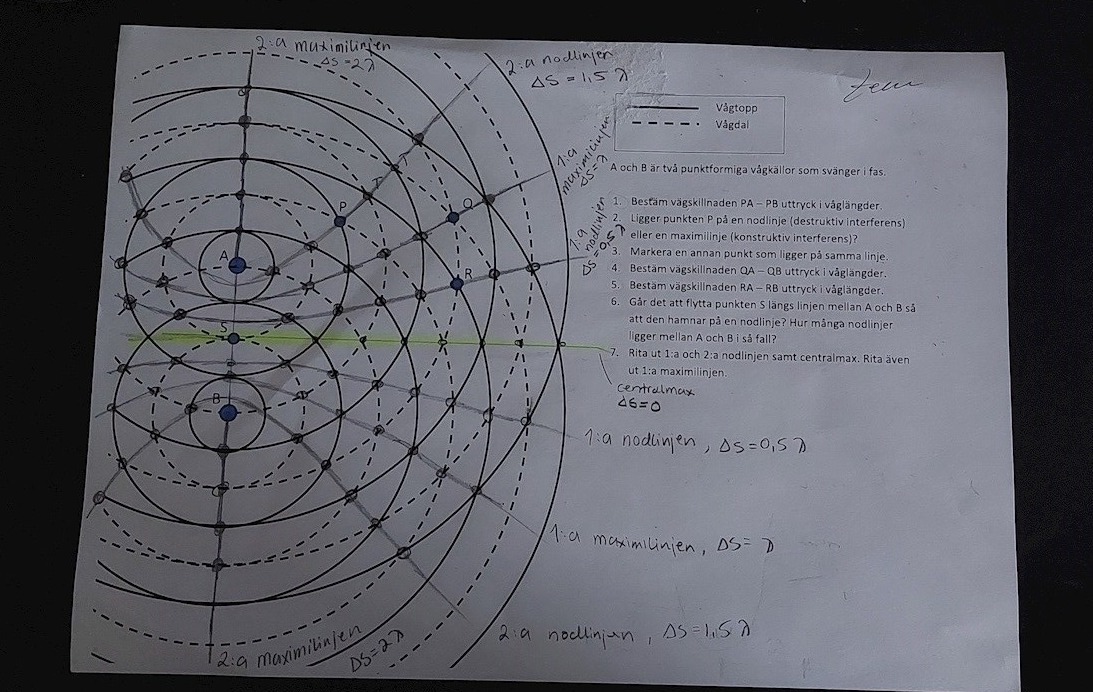 2:a maximilinjen
ΔS = 2λ
2:a nodlinjen
ΔS = 1,5 λ
1:a
maximilinjen
ΔS = λ
1:a
nodlinjen
ΔS = 0,5 λ
Vågtopp
Vågdal
A och B är två punktformiga vågkällor som svänger i fas.
1. Bestäm vägskillnaden PA – PB uttryck i våglängder.
2. Ligger punkten P på en nodlinje (destruktiv interferens)
eller en maximilinje (konstruktiv interferens)?
3. Markera en annan punkt som ligger på samma linje.
4. Bestäm vägskillnaden QA – QB uttryck i våglängder.
5. Bestäm vägskillnaden RA – RB uttryck i våglängder.
6. Går det att flytta punkten S längs linjen mellan A och B så
att den hamnar på en nodlinje? Hur många nodlinjer
ligger mellan A och B i så fall?
7. Rita ut 1:a och 2:a nodlinjen samt centralmax. Rita även
ut 1:a maximilinjen.
P
Q
A
R
S
B
centralmax
ΔS = 0
1:a nodlinjen, ΔS = 0,5 λ
1:a maximilinjen, ΔS = λ
2:a nodlinjen, ΔS = 1,5 λ
2:a maximilinjen
ΔS = 2 λ